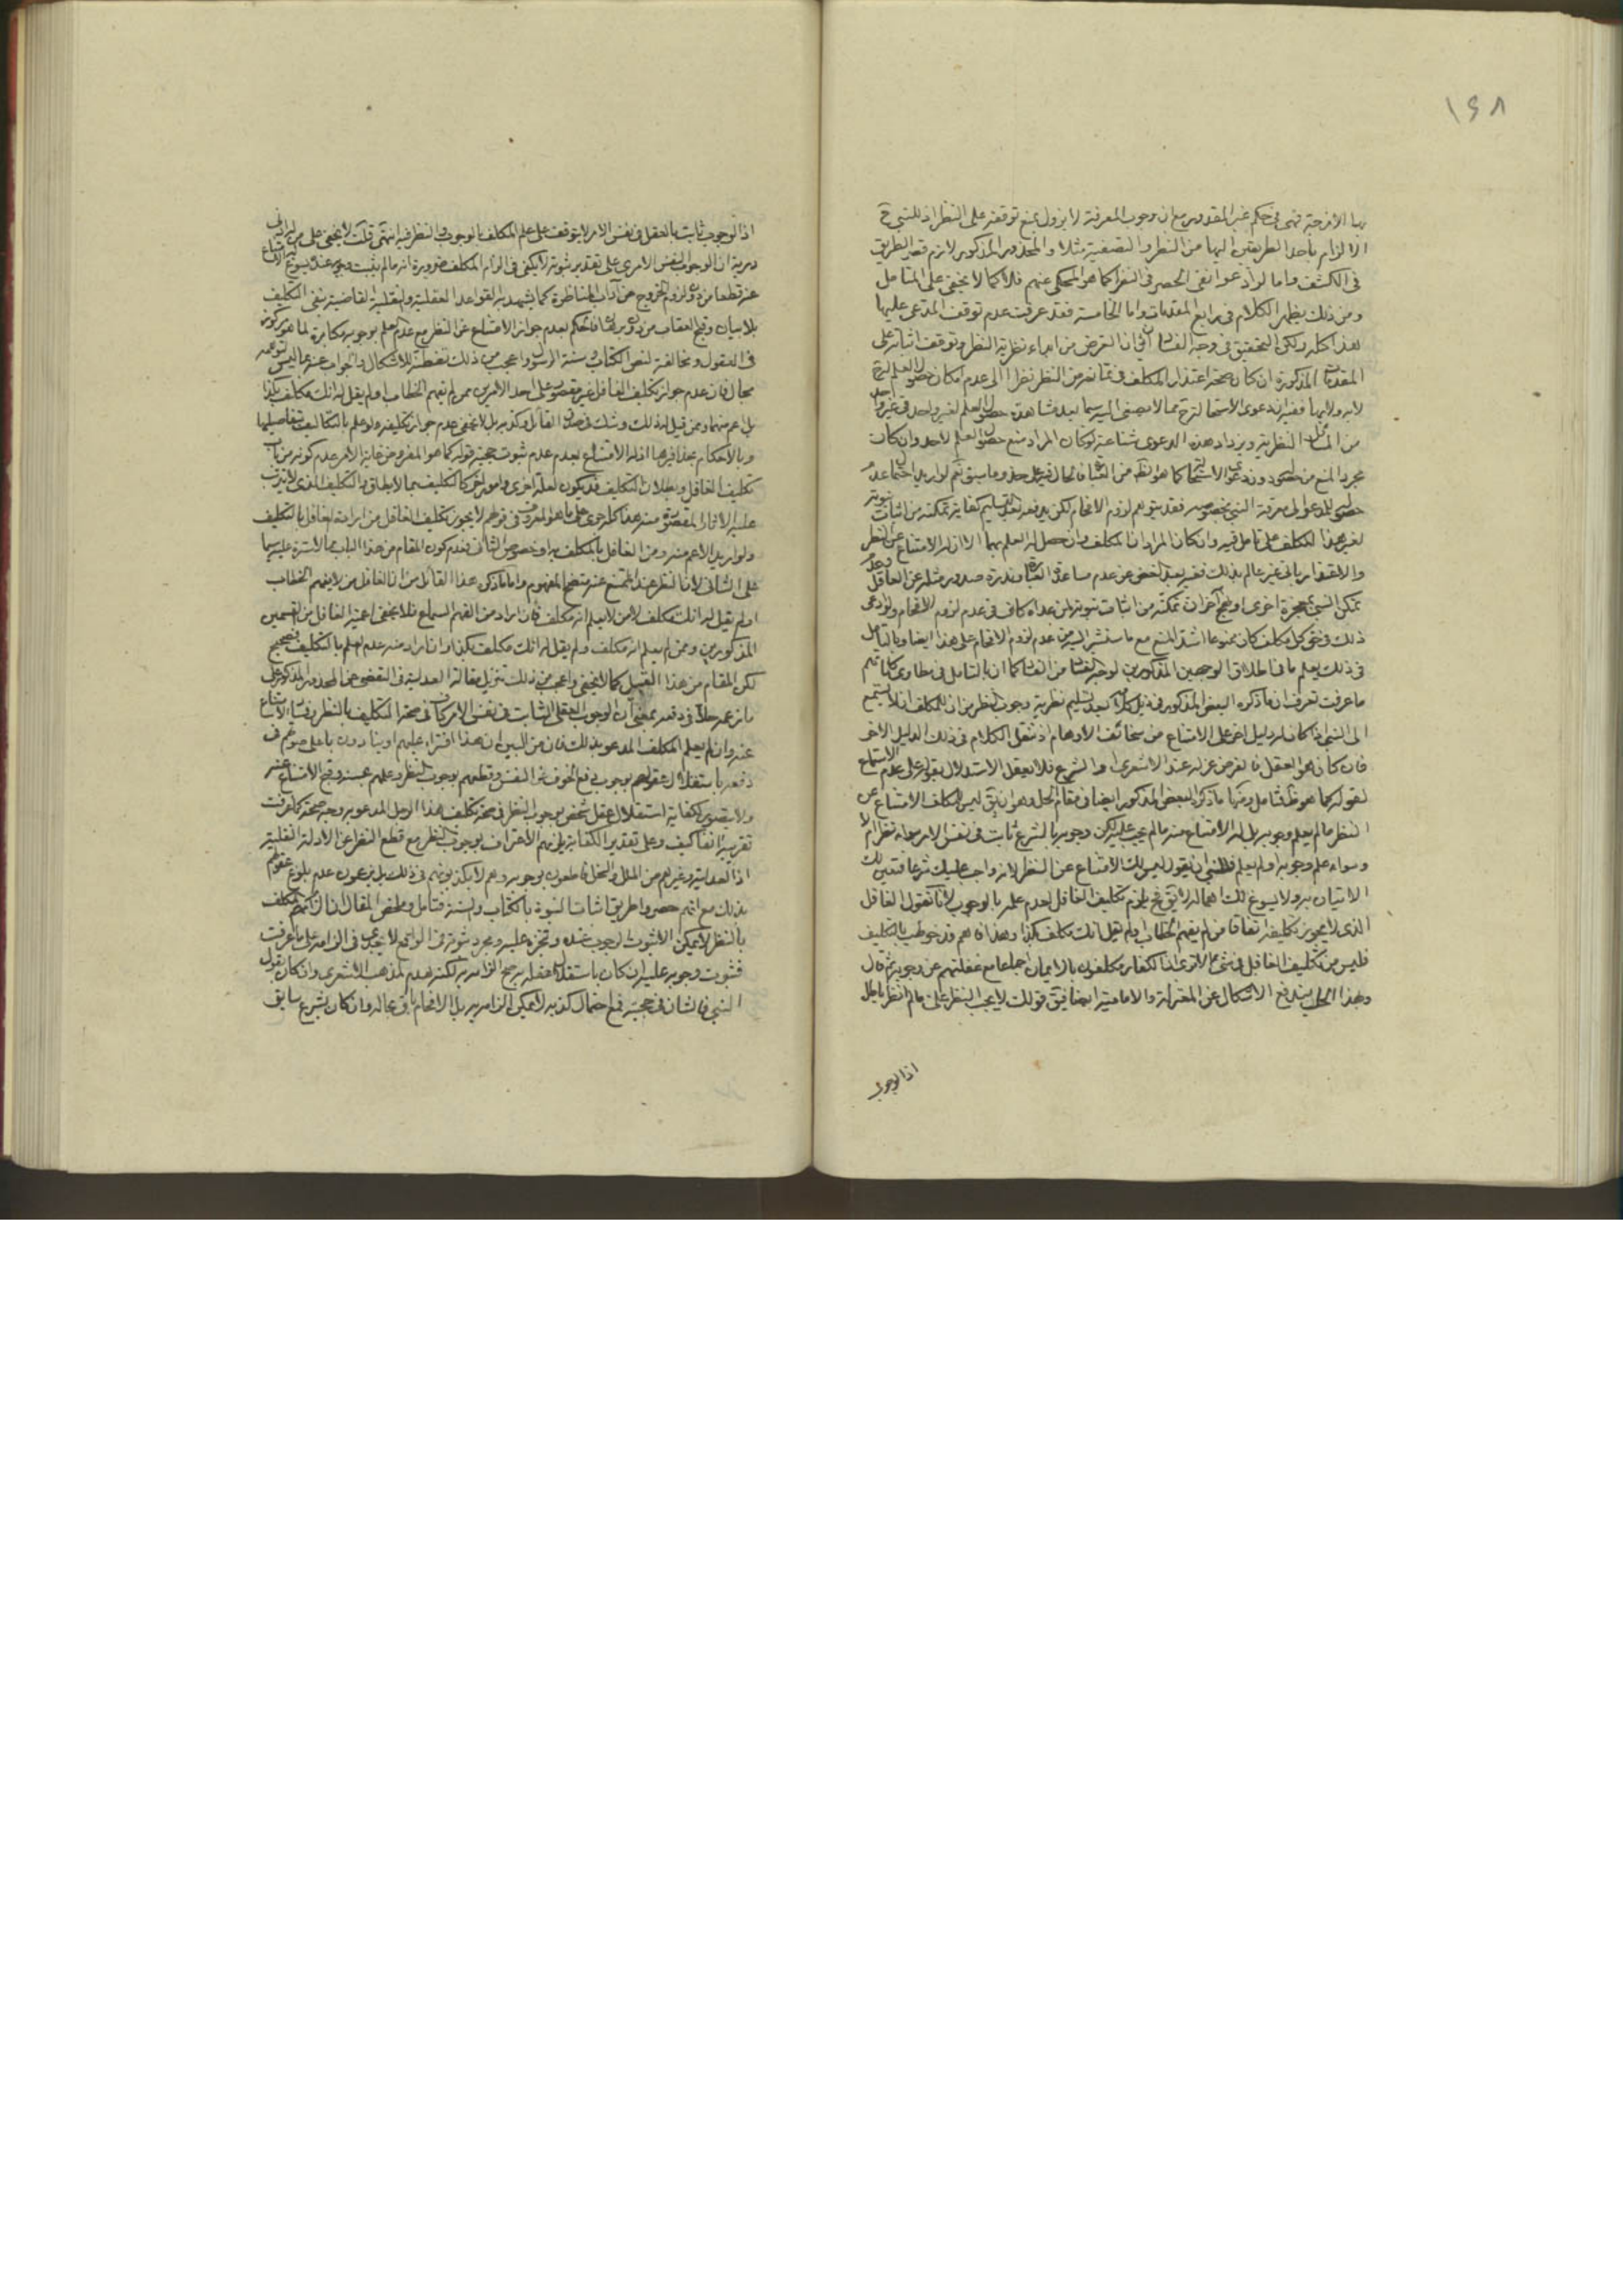 ١٤٨
بها الا فرجته فهى فى حكم غير المقدور مع ان وجوب المعرفة لا يزول بمنع توقفه على النظر اذ للنبي ح
الالزام باحد الطريقين اليها من النظر والتصفية مثلا والمحذور المذكور لازم قصر الطريق
فى الكشف واما لو ادعوا نفى الحصر فى النظر كما هو المحكى عنهم فلا كما لا يخفى على المتامل
ومن ذلك يظهر الكلام فى رابع المقدمات واما الخامسة فقد عرفت عدم توقف المدعى عليها
هذا كله ولكن التحقيق فى وجه الفساد ان الغرض من ابداء نظرية النظر وتوقف اثباته على
المقدمات المذكورة ان كان صحة اعتذار المكلف فى تقاعده من النظر نظرا الى عدم امكان حصول العلم
لابد ولابها ففيه ان دعوى الاستحالة مما لا يصغى اليه سيما بعد مشاهدة حصول العلم لغير واحد فى غير واحد
من المسائل النظرية ويزداد هذه الدعوى شناعة لو كان المراد منع حصول العلم لاحد وان كان
مجرد المنع من حصوله دون دعوى الاستحالة كما هو الظ من العبارة فالحال فيه على حذو ما سبق نعم لو اريد احتمال عدم
حصوله للمدعو الى معرفة النبي بخصوصه فقد يتوهم لزوم الافحام لكن يدفعه بعد تسليم كفاية تمكنه من اثبات نبوته
لغير هذا المكلف على تامل فيه وان كان المراد ان المكلف وان حصل له العلم بها الا ان له الامتناع عن النظر
والاعتذار بانى غير عالم بذلك ففيه بعد الغض عن عدم مساعدة العبارة وندرة صدور مثله عن العاقل وعدم
تمكن النبي بمعجزة اخرى او بحج آخر ان تمكنه من اثبات نبوته لمن عداه كاف فى عدم لزوم الافحام ولو ادعى
ذلك فى حق كل مكلف كان ممنوعا اشد المنع مع ما ستشير اليه من عدم لزوم الافحام على هذا ايضا وبالتامل
فى ذلك يعلم ما فى اطلاق الوجهين المذكورين لوجه الفساد من الفساد كما ان بالتامل فى مطاوى كلماتهم
ما عرفت تعرف ان ما ذكره البعض المذكور فى ذيل كلامه بعد تسليم نظرية وجوب النظر من ان للمكلف ان لا يستمع
الى النبي اذا كان له دليل اخر على الامتناع من سخائف الاوهام اذ ننقل الكلام فى ذلك الدليل الاخر
فان كان هو العقل فالفرض عزله عند الاشعرى او الشرع فلا يعقل الاستدلال بقوله على عدم الاستماع
لقوله كما هو ظ فتامل ومنها ما ذكره البعض المذكور ايضا فى مقام الحل وهو ان يق ليس للمكلف الامتناع عن
النظر ما لم يعلم وجوبه بل له الامتناع منه ما لم يجب عليه لكن وجوبه بالشرع ثابت فى نفس الامر سواء نظر ام لا
وسواء علم وجوبه او لم يعلم فللنبي ان يقول ليس لك الامتناع عن النظر لانه واجب عليك شرعا فتعين لك
الاتيان به ولا يسوغ لك اهماله لا يق فح يلزم تكليف الغافل لعدم علمه بالوجوب لانا نقول الغافل
الذى لا يجوز تكليفه اتفاقا من لم يفهم الخطاب او لم يقل انك مكلف بكذا وهذا فاهم قد خوطب بالتكليف
فليس من تكليف الغافل فى شئ الا ترى ان الكفار مكلفون بالايمان اجماعا مع غفلتهم عن وجوبه ثم قال
وبهذا الحل يندفع الاشكال عن المعتزلة والامامية ايضا فيق قولك لا يجب النظر على ما لم انظر باطل
اذ الوجوب
اذ الوجوب ثابت بالعقل فى نفس الامر لا يتوقف على علم المكلف بالوجوب والنظر فيه انتهى قلت لا يخفى على من له ادنى
دربة ان الوجوب النفس الامرى على تقدير ثبوته لا يكفى فى الزام المكلف ضرورة انه ما لم يثبت وجوبه عنده يسوغ الامتناع
عنه قطعا من دون لزوم الخروج عن آداب المناظرة كما يشهد به القواعد العقلية والنقلية القاضية بنفى التكليف
بلا بيان وقبح العقاب من دون برهان فالحكم بعدم جواز الامتناع عن النظر مع عدم العلم بوجوبه مكابرة لما هو مركوز
فى العقول ومخالفة لنص الكتاب وسنة الرسول واعجب من ذلك تفطنه للاشكال والجواب عنه بما ليس
محال فان عدم جواز تكليف الغافل غير مقصور على احد الامرين ممن لم يفهم الخطاب او لم يقل له انك مكلف بكذا
بل اعم منهما وممن قيل له ذلك وشك فى صدق القائل وكذبه بل لا يخفى عدم جواز تكليفه ولو علم بالتكاليف بتفاصيلها
وبالاحكام بحذافيرها اذ له الامتناع لعدم ثبوت حجية قوله كما هو المفروض غاية الامر عدم كونه من باب
تكليف الغافل وبطلان التكليف قد يكون لعلة اخرى وامور اخر كالتكليف بما لا يطاق والتكليف الذى لا يترتب
عليه الاثار المقصودة منه هذا كله جرى على ما هو المعروف فى قولهم لا يجوز تكليف الغافل من ارادة الغافل بالتكليف
ولو اريد الاعم منه ومن الغافل بالمكلف به او خصوص الثانى فعدم كون المقام من هذا الباب مما لا سترة عليه سيما
على الثانى لان النظر عند الممتنع عنه متضح المفهوم واما ما ذكره هذا القائل من ان الغافل من لا يفهم الخطاب
او لم يقل له انك مكلف لا من لا يعلم انه مكلف فان اراد من الفهم السماع فلا يخفى اعمية الغافل من القسمين
المذكورين وممن لم يعلم انه مكلف ولم يقل له انك مكلف بكذا وان اراد منه عدم العلم بالتكليف فصحيح
لكن المقام من هذا القبيل كما لا يخفى واعجب من ذلك تنزيل مقالة العدلية فى التفصى عن المحذور المذكور على
ما زعمه حلا فى دفعه بمعنى ان الوجوب العقلى الثابت فى نفس الامر كاف فى صحة التكليف بالنظر وقبح الامتناع
عنه وان لم يعلم المكلف المدعو بذلك فان من البين ان هذا افتراء عليهم اذ ينادون باعلى صوتهم فى
دفعه باستقلال عقولهم بوجوب دفع الخوف عن النفس وقطعهم بوجوب النظر وعلمهم بحسنه وقبح الامتناع عنه
ولا يتصور كفاية استقلال عقل شخص بوجوب النظر فى صحة تكليف هذا الرجل المدعو به وجه صحة كما عرفت
تقريبه آنفا كيف وعلى تقدير الكفاية يلزمهم الاعتراف بوجوب النظر مع قطع النظر عن الادلة النقلية
اذ العدلية وغيرهم من الملل والنحل قاطعون بوجوبه وهم لا يكذبونهم فى ذلك بل يدعون عدم بلوغ عقولهم
بذلك مع انهم حصروا طريق اثبات النبوة بالكتاب والسنة فتامل وملخص المقال ان الزام المكلف
بالنظر لا يمكن الا بثبوت الوجوب عنده وتنجزه عليه ومجرد ثبوته فى الواقع لا يجدى فى الزامه على ما عرفت
فثبوت وجوبه عليه ان كان باستقلال عقله يرجح الزامه به لكنه هدم لمذهب الاشعرى وان كان بقول
النبي فالشان فى حجيته فمع احتمال كذبه لا يمكن الزامه به بل الافحام باق بحاله وان كان بشرع سابق